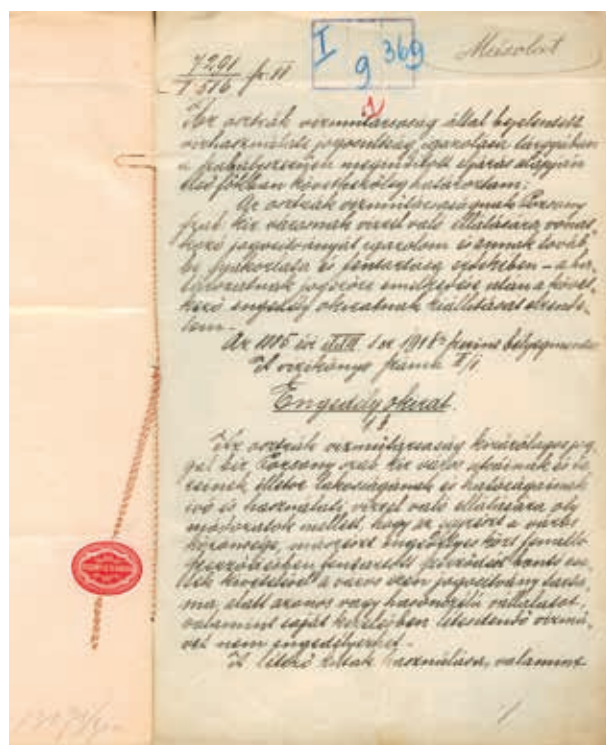 7291
1516 fr. II
I
9
369
Másolat
1
Az osztrák vizműtársaság által bejelentett
vizhasználati jogosultság igazolása tárgyában
a szabályszerűen megindított eljárás alapján
első fokban következőleg határoztam:
Az osztrák vizműtársaságnak Pozsony
szab. kir. városnak vizzel való ellátására vonat-
kozó jogosítványát igazolom és annak továb-
bi gyakorlása és fentartása érdekében – a ha-
tározatnak jogerőre emelkedése után a követ-
kező engedély okiratnak kiállítását elrende-
lem.
Az 1885 évi XXIII. t. cz. § szerint bélyegmentes
A vizikönyv száma II/1
Engedélyokirat.
Az osztrák vizműtársaság kizárólagos jog-
gal bír Pozsony szab. kir. város utcáinak és te-
reinek, illetve lakosságának és hatóságainak
ivó és használati vizzel való ellátására, oly
módozatok mellett, hogy az egyrészt a város
közönsége, másrészt engedélyes közt fennálló
szerződésben fentartott
a város ezen jogosítvány tarta-
ma alatt azonos vagy hasonczélú vállalatot,
valamint saját kezelésben létesítendő vizmű-
vet nem engedélyezhet.
A létező kutak használása, valamint
1